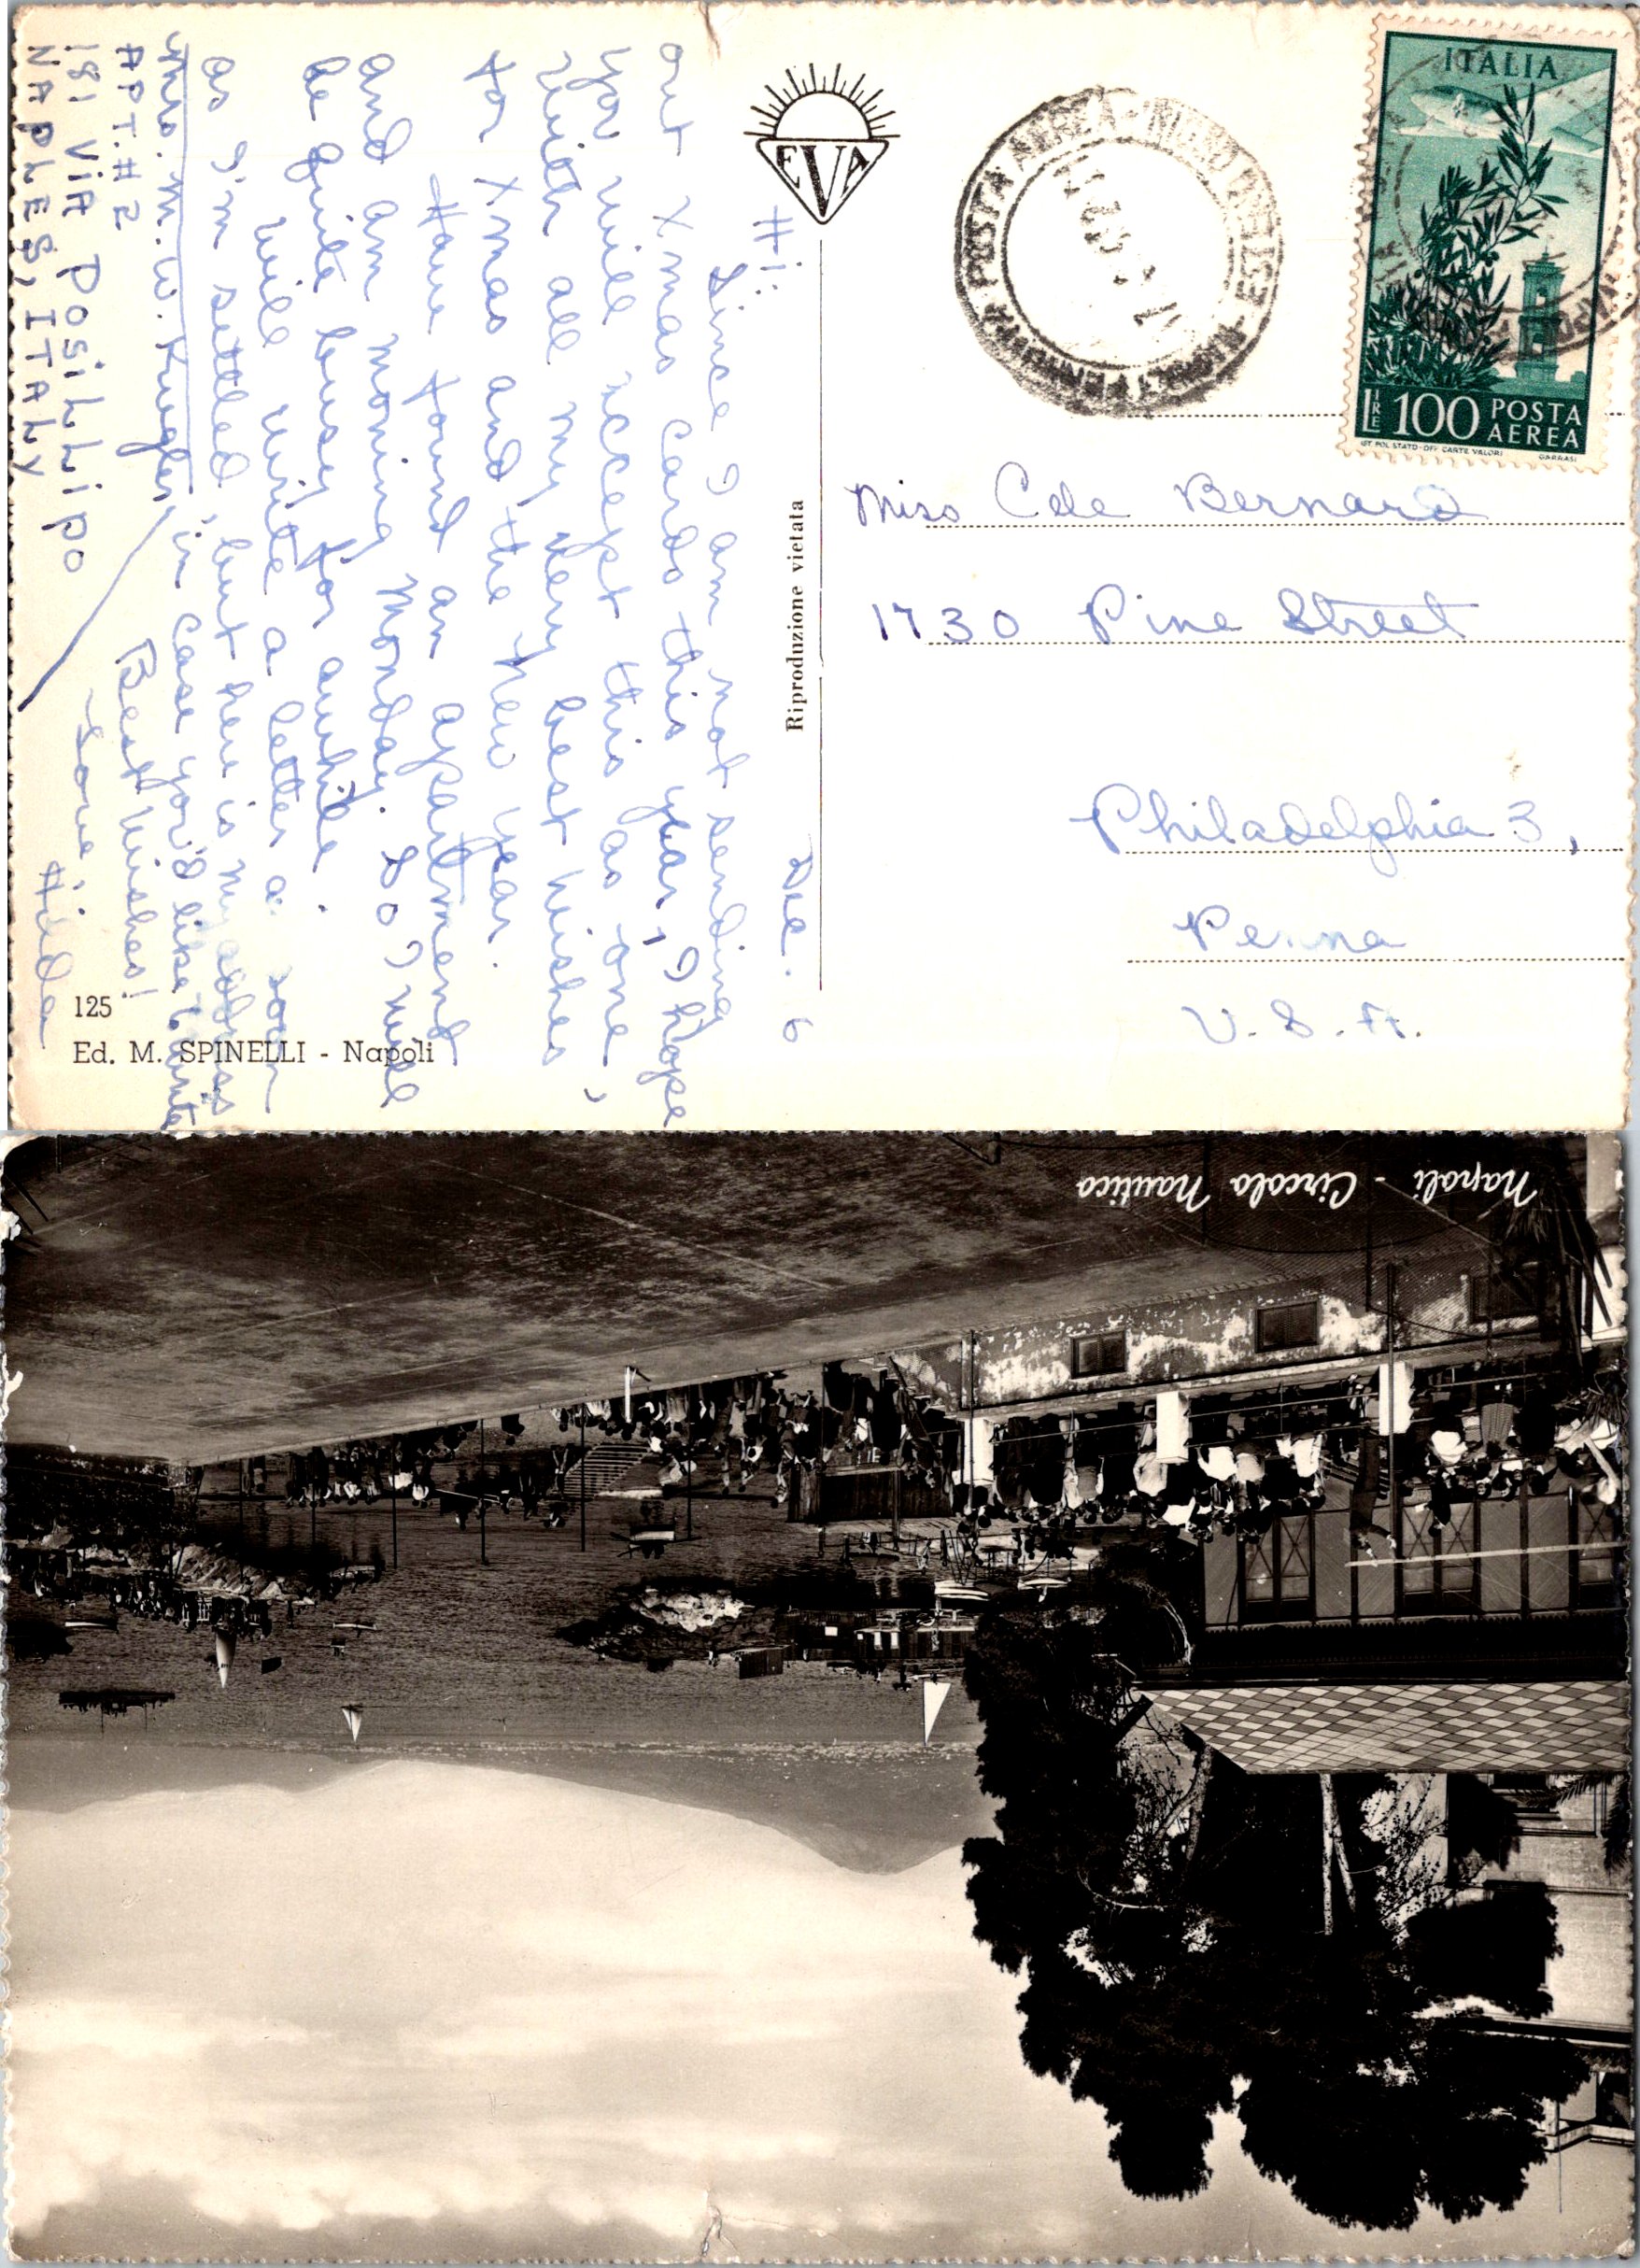 Dec. 6
Hi:
Since I am not sending
out Xmas Cards this year, I hope
you will accept this as one,
with all my very best wishes
for Xmas and the New Year.
Have found an apartment
and am moving Monday. So I will
be quite busy for awhile.
Will write a letter as soon
as I'm settled, but here is my address
in case you'd like to write
Mrs. M. W. Kugler
APT. # 2
181 VIA POSILLIPO
NAPLES, ITALY
Best Wishes!
Love,
Hilda
125
Ed. M. SPINELLI - Napoli
EVA
Riproduzione vietata
POSTA AEREA
ITALIA
LIRE 100 POSTA AEREA
IST. POL. STATO-OFF. CARTE VALORI
Miss Cele Bernard
1730 Pine Street
Philadelphia 3,
Penna
U.S.A.
Napoli - Circolo Nautico